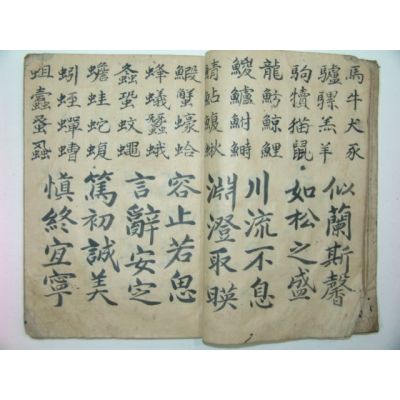 馬牛犬豕
驢騾羔羊
駒犢猫鼠
龍鯨鯉
鱸鮒鰣
鯖鮎鰒鰍
似蘭斯馨
如松之盛
川流不息
淵澄取暎
鰕蟹蠔蛤
蜂蟻蠶蛾
螽蛩蚊蠅
蟾蛙蛇蝮
蚓蛭蟬螬
蛆蠹蚤蝨
容止若思
言辭安定
篤初誠美
慎終宜寧